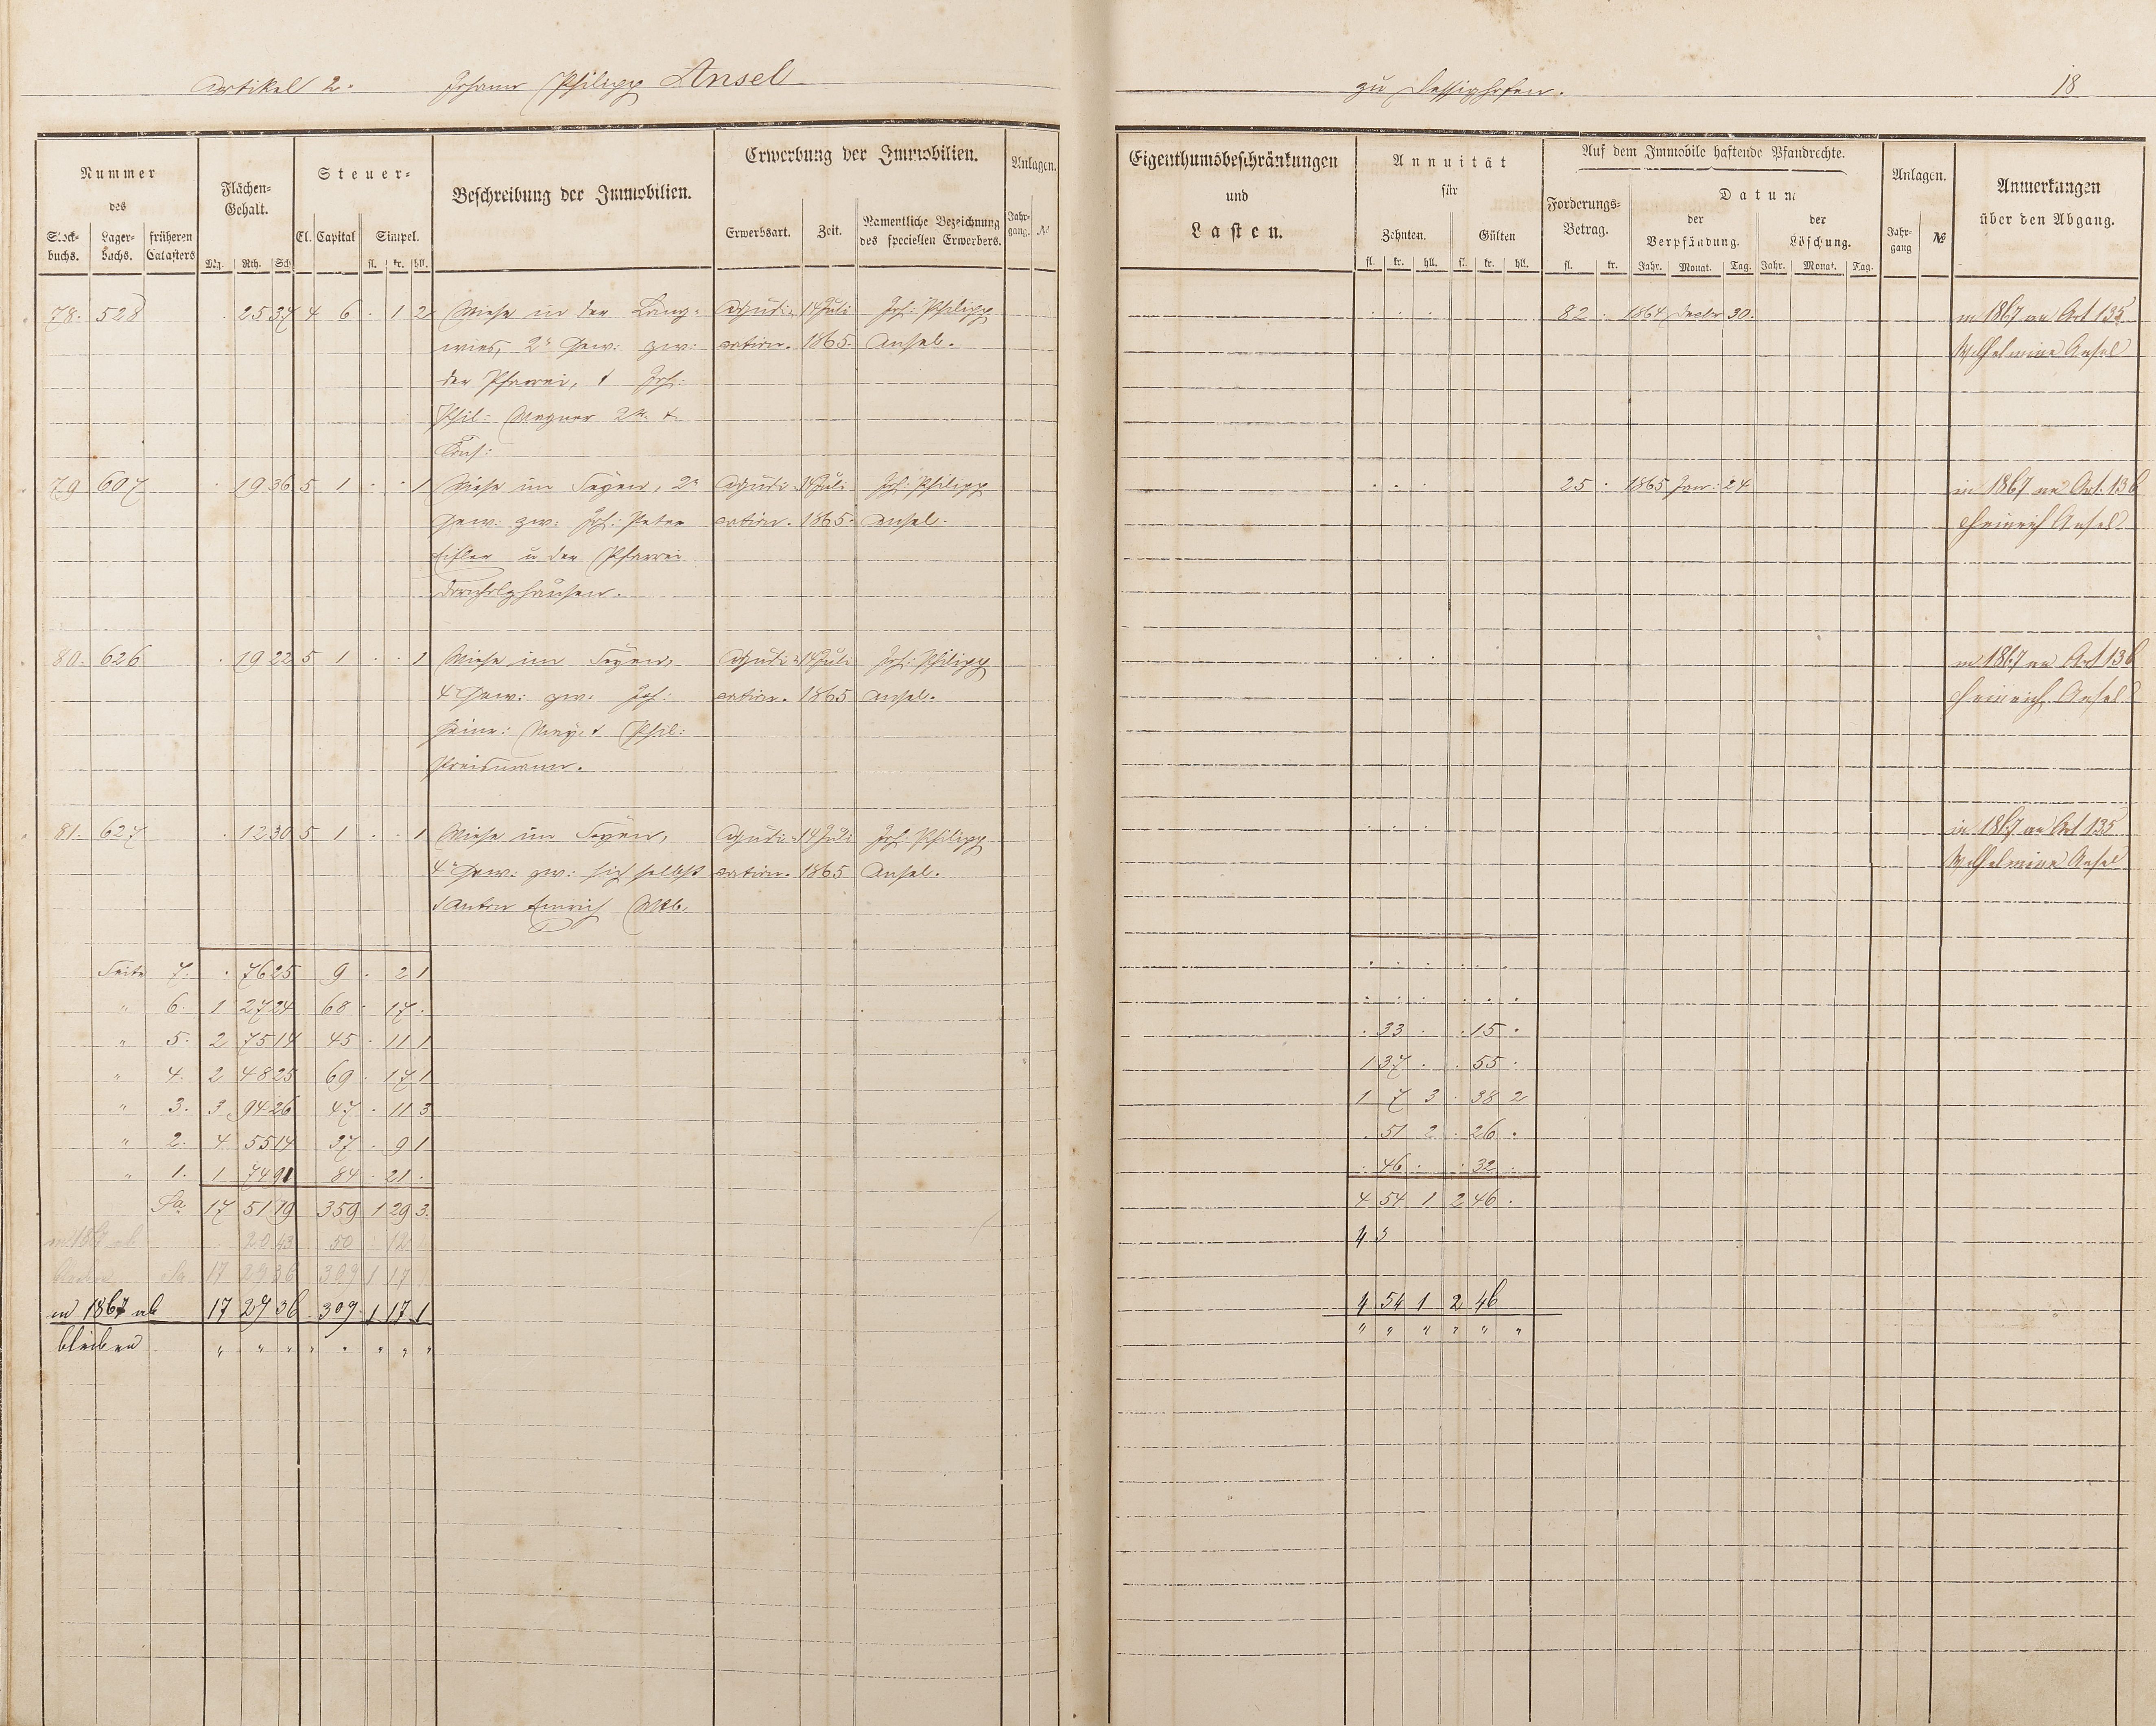 Artikel 2. Johann Philipp Ansel zu Dessighofen. 18
Nummer des
Stock-buchs. Lager-buchs. früheren Catasters
Flächen-Gehalt.
Mg. Rth. Sch
Steuer-
Cl. Capital Simpel.
fl. kr. hll.
Beschreibung der Immobilien.
Erwerbung der Immobilien.
Erwerbsart. Zeit. Namentliche Bezeichnung des speciellen Erwerbers.
Anlagen.
Jahr-gang. №
Eigenthumsbeschränkungen und Lasten.
Annuität für
Zehnten. Gülten
fl. kr. hll. fl. kr. hll.
Auf dem Immobile haftende Pfandrechte.
Forderungs-Betrag.
fl. kr.
Datum
der Verpfändung. der Löschung.
Jahr. Monat. Tag. Jahr. Monat. Tag.
Anlagen.
Jahr-gang №
Anmerkungen über den Abgang.
78. 528 . 25 37 4 6 . 1 2 Wiese in der Lang- Adjudi- 14 Juli Joh: Philipp . . . 82 . 1864 Decbr 30. in 1867 an Art 135
wies, 2r Gew: zw: cation. 1865. Ansel. Wilhelmine Ansel
der Pfarrei, & Joh:
Phil: Wagner 2r. &
Cons:
79 607 . 19 36 5 1 . . 1 Wiese im Seyen, 2r Adjudi- 14 Juli Joh: Philipp . . . 25 . 1865 Jan: 24 in 1867 an Art. 136
Gew: zw: Joh: Peter cation. 1865. Ansel. Heinrich Ansel
u der Pfarrei
Dornholzhausen.
80. 626 . 19 22 5 1 . . 1 Wiese im Seyen, Adjudi- 14 Juli Joh: Philipp . . . in 1867 an Art 136
4r Gew: zw: Joh: cation. 1865 Ansel. Heinrich Ansel
Heinr: May. & Phil:
81. 627 . 12 30 5 1 . . 1 Wiese im Seyen, Adjudi- 14 Juli Joh: Philipp . . . in 1867 an Art 135
4r Gew: zw: sich selbst cation. 1865 Ansel. Wilhelmine Ansel
& Anton Emrich
Seite 7. . 76 25 9 . 2 1 . . . . . .
" 6. 1 27 24 68 . 17 . . . . . . .
" 5. 2 75 14 45 . 11 1 . 33 . . 15 .
" 4. 2 48 25 69 . 17 1 1 37 . . 55 .
" 3. 3 94 26 47 . 11 3 1 7 3 . 38 2
" 2. 4 55 14 37 . 9 1 . 51 2 . 26 .
" 1. 1 74 91 84 . 21 . . 46 . . 32 .
Sa 17 51 79 359 1 29 3. 4 54 1 2 46 .
in 1867 ab 20 43 50 12 4 5
Sa 17 29 36 309 1 17 1
in 1867 ab 17 29 36 309 1 17 1 4 54 1 2 46
bleiben " " " " " " " " " " " " " "